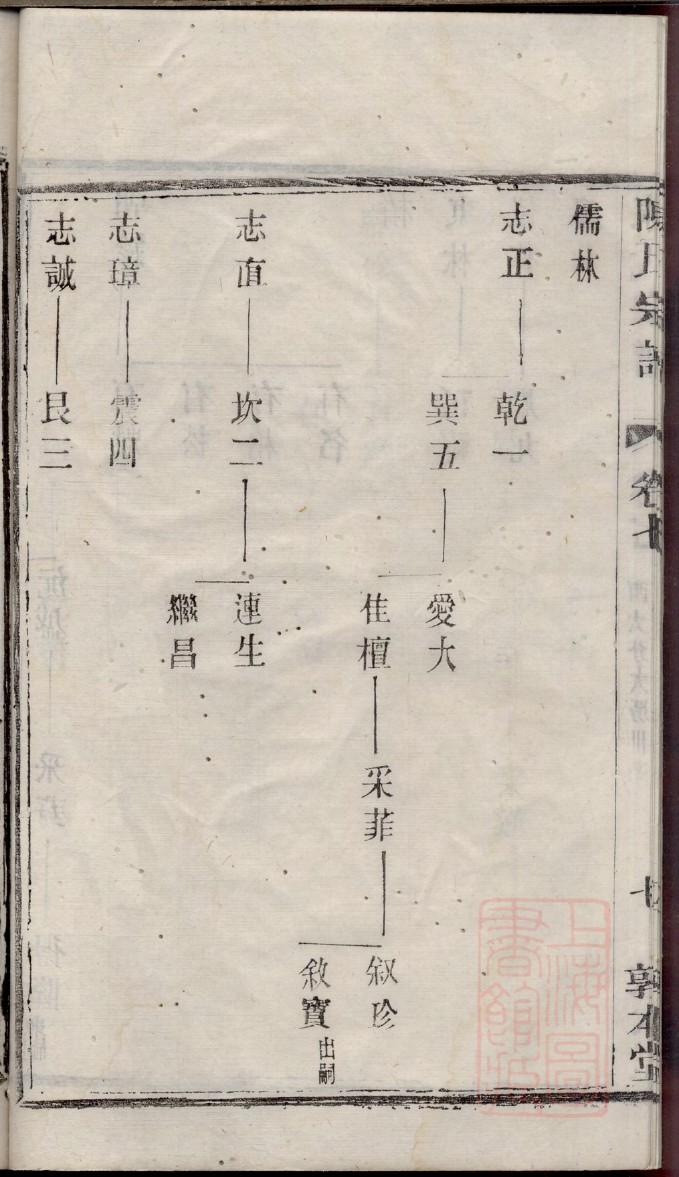 陳氏宗譜
卷七
七
敦本堂
儒林
志正
乾一
巽五
愛大
佳檀
采菲
叙珍
敘寶出嗣
志直
坎二
連生
繼昌
志璋
震四
志誠
艮三
上海圖書館藏